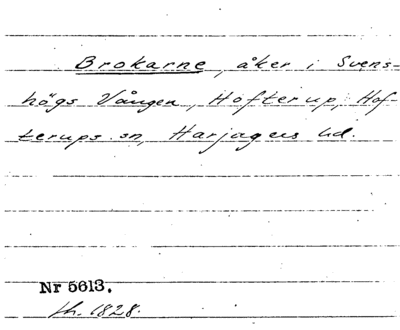 Brokarne, åker i Svens-
högs Vången, Hofterup, Hof-
terups sn, Harjagers hd.
Nr 5613.
th. 1828.